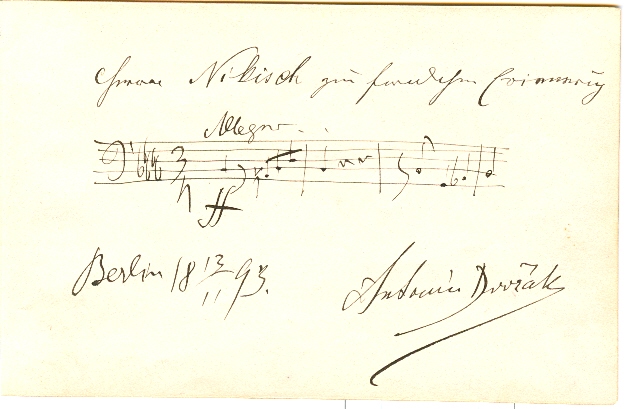 Herrn Nikisch zur freundlichen Erinnerung
Allegro.
3
4
ff
Berlin 18 13/11 93.
Antonín Dvořák